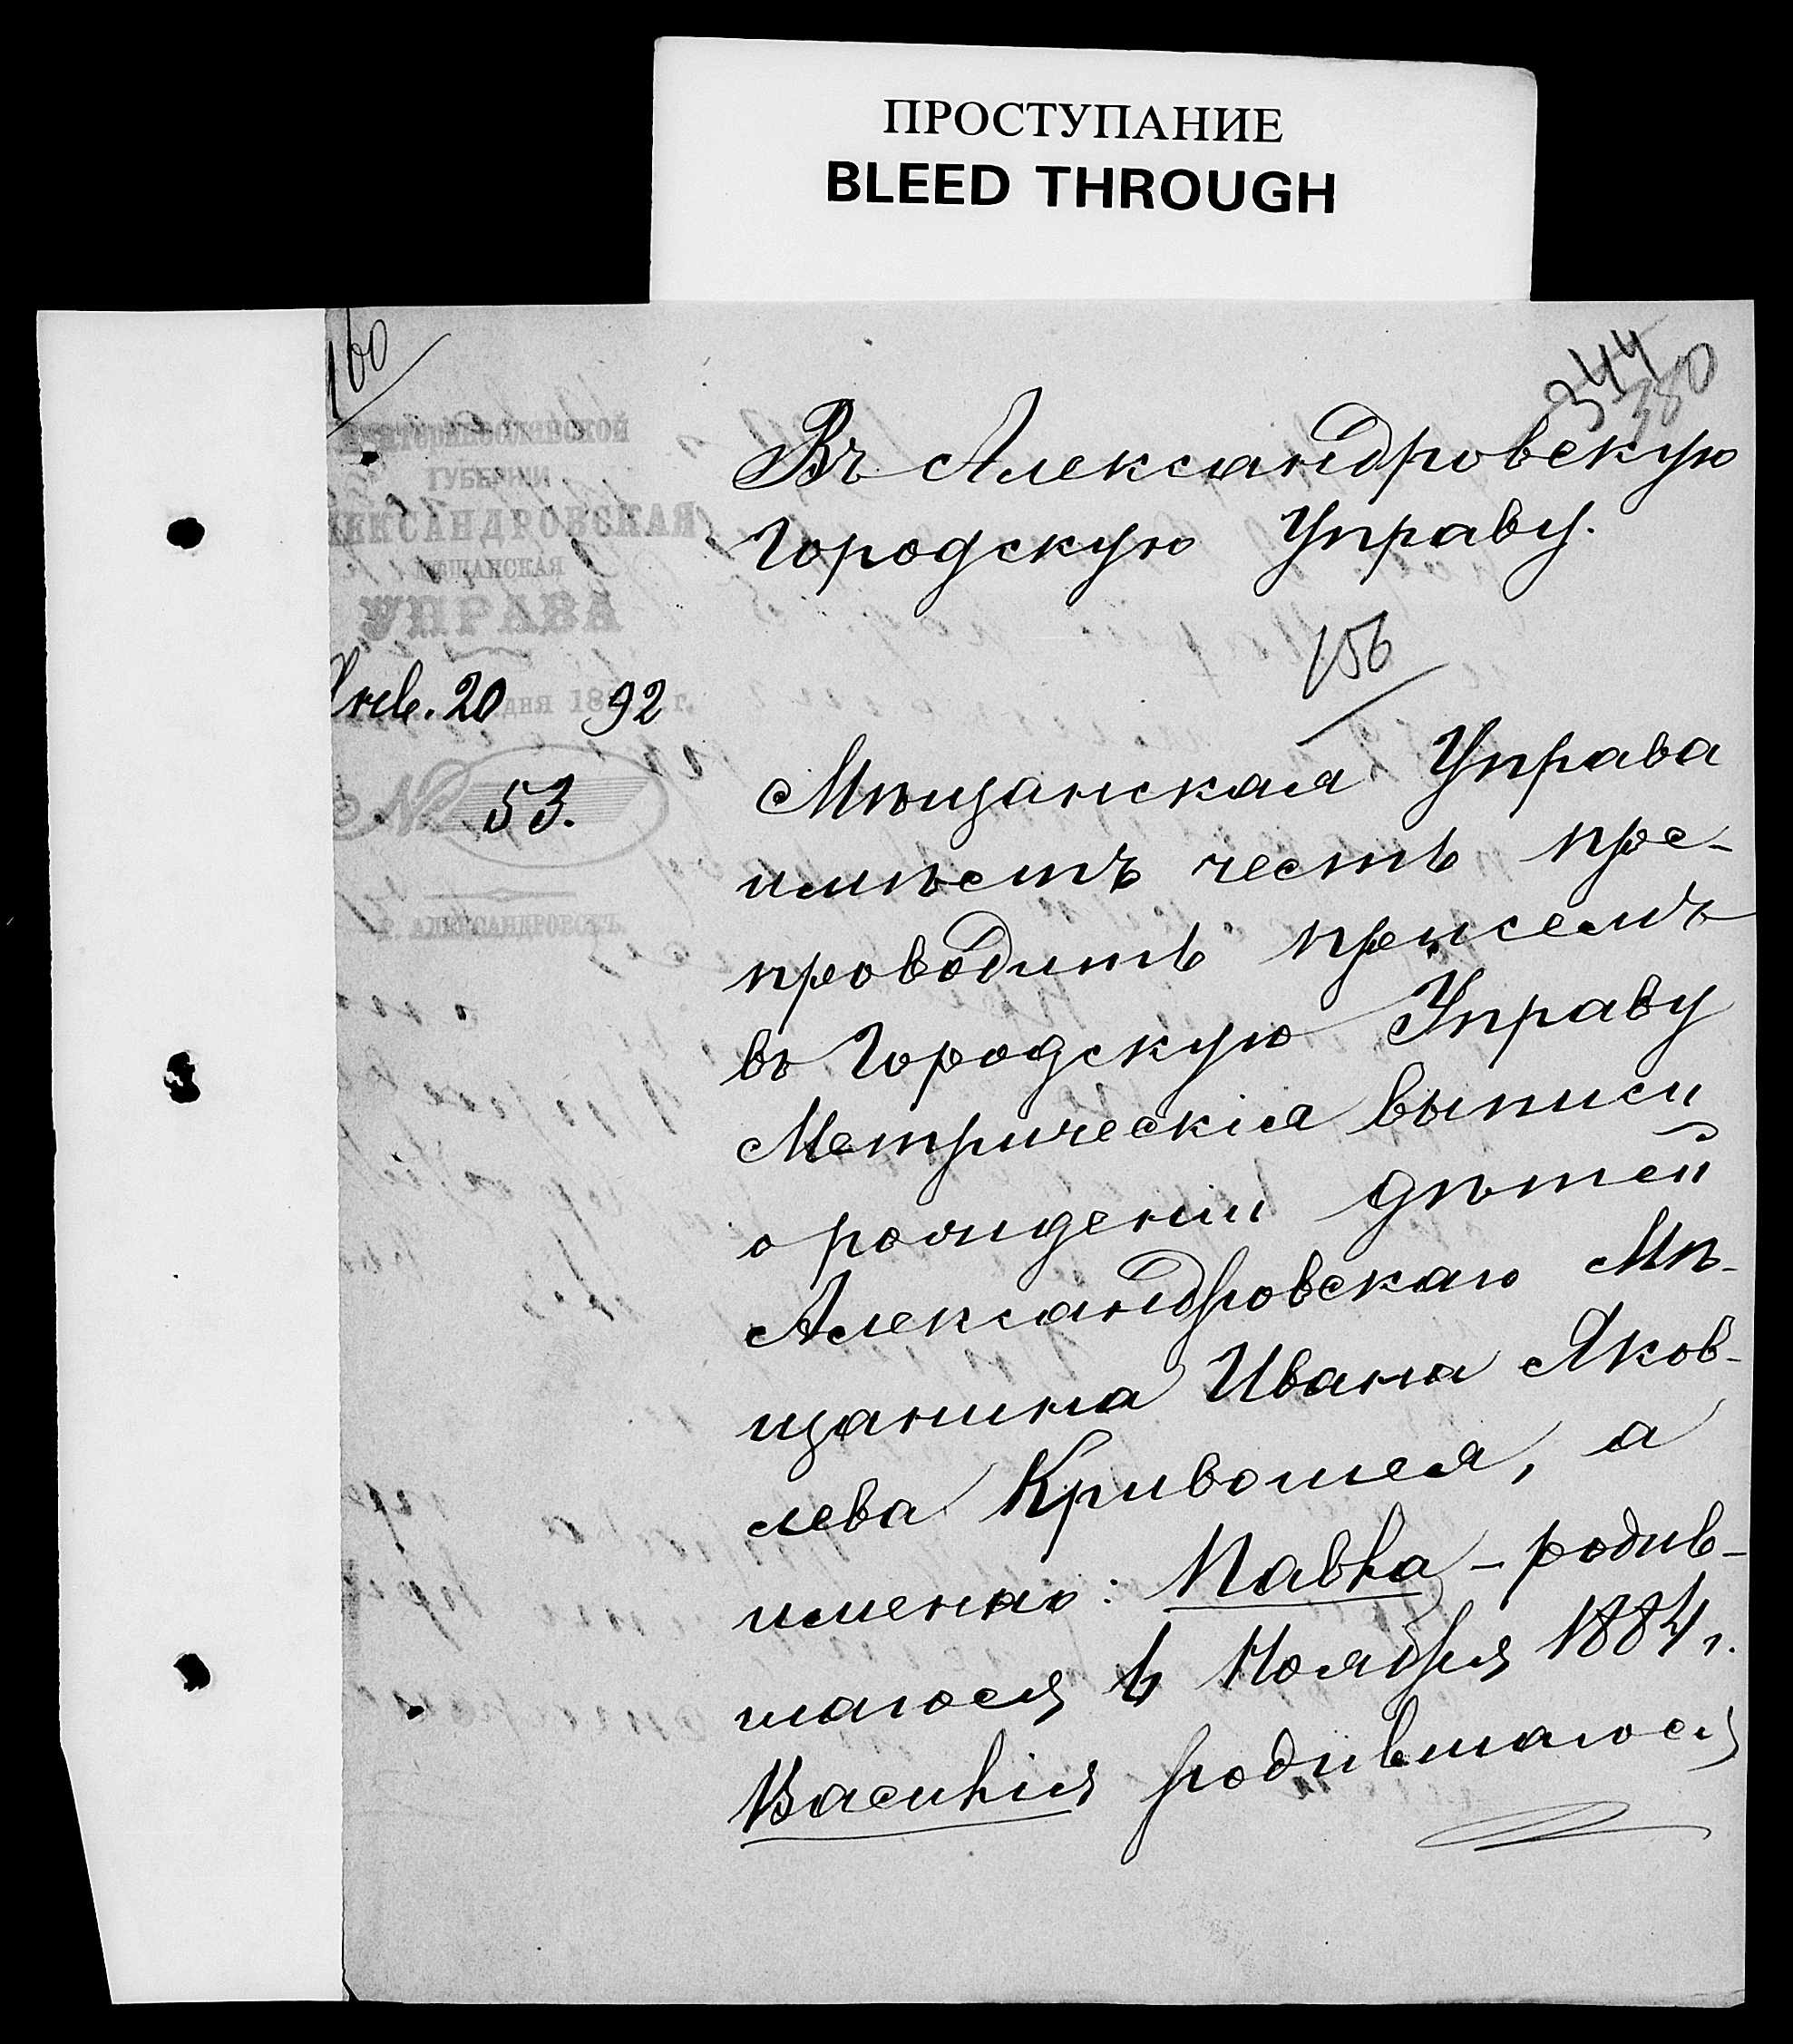 ПРОСТУПАНИЕ
BLEED THROUGH
160
344
380
ЕКАТЕРИНОСЛАВСКОЙ
ГУБЕРНІИ
АЛЕКСАНДРОВСКАЯ
МѢЩАНСКАЯ
УПРАВА
Янв. 20 дня 1892 г.
№ 53.
Г. АЛЕКСАНДРОВСКЪ.
Въ Александровскую
Городскую Управу.
156
Мѣщанская Управа
имѣетъ честь пре-
проводить при семъ
въ Городскую Управу
Метрическія выписи
о рожденіи дѣтей
Александровскаго Мѣ-
щанина Ивана Яков-
лева Кривошея, а
именно: Павла - родив-
шагося 6 Ноября 1884 г.
Василія родившагося